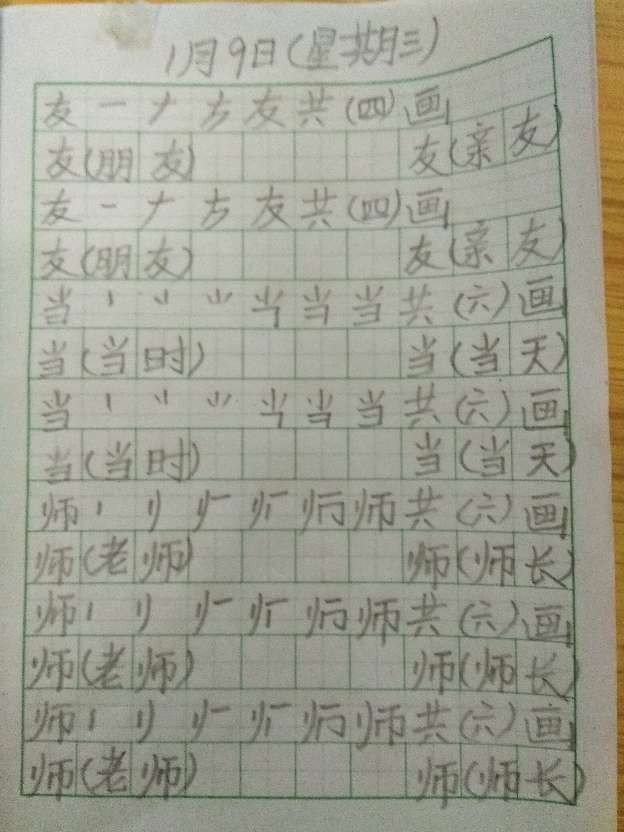 1月9日(星期三)
友一ナ方友共(四)画
友(朋友) 友(亲友)
友一ナ方友共(四)画
友(朋友) 友(亲友)
当丨丷⺌当当当共(六)画
当(当时) 当(当天)
当丨丷⺌当当当共(六)画
当(当时) 当(当天)
师丨丿师共(六)画
师(老师) 师(师长)
师丨丿师共(六)画
师(老师) 师(师长)
师丨丿师共(六)画
师(老师) 师(师长)